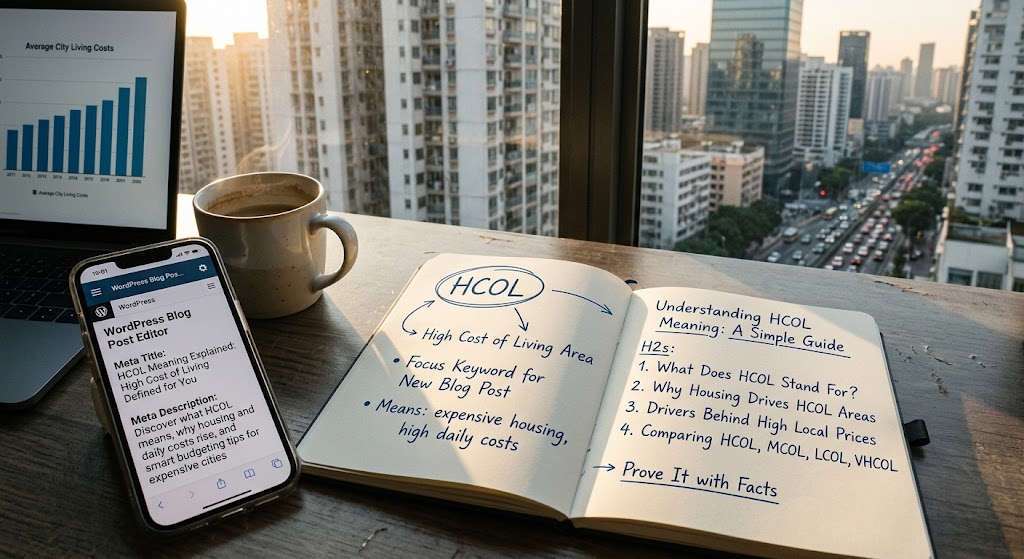 Average City Living Costs
Average City Living Costs
WordPress Blog Post...
WordPress
WordPress Blog
Post Editor
Meta Title:
HCOL Meaning Explained:
High Cost of Living
Defined for You
Meta Description:
Discover what HCOL
means, why housing and
daily costs rise, and
smart budgeting tips for
expensive cities
HCOL
High Cost of Living Area
• Focus Keyword for
New Blog Post
• Means: expensive housing,
high daily costs
Understanding HCOL
Meaning: A Simple Guide
H2s:
1. What Does HCOL Stand For?
2. Why Housing Drives HCOL Areas
3. Drivers Behind High Local Prices
4. Comparing HCOL, MCOL, LCOL, VHCOL
→ Prove It with Facts